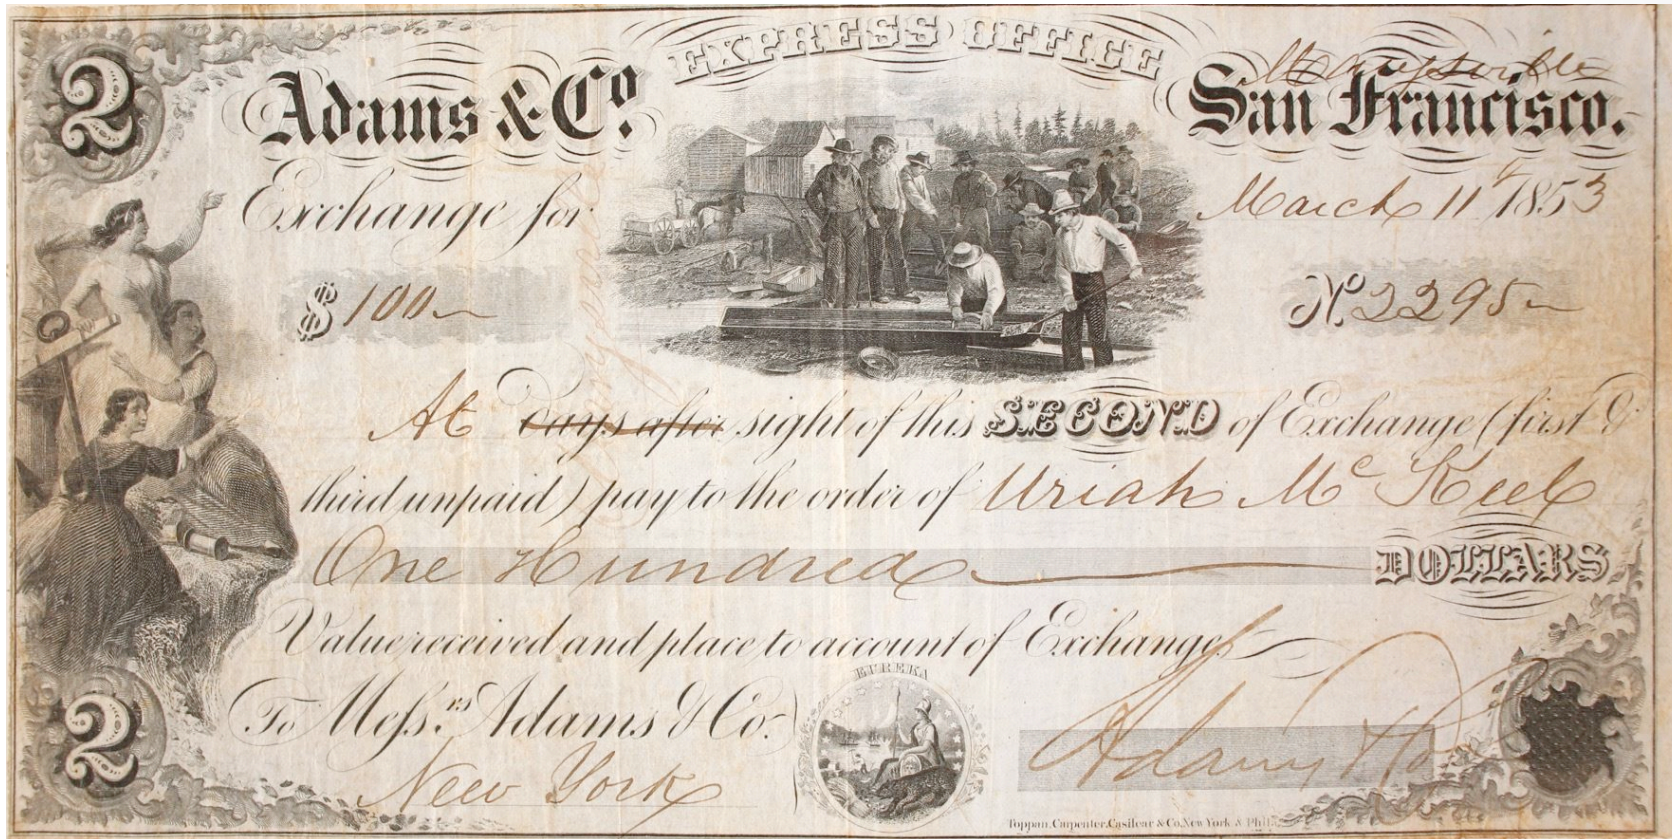 2
Adams & Co.
EXPRESS OFFICE
Marysville
San Francisco.
Exchange for
March 11th 1853
$ 100
No. 2295
At days after sight of this SECOND of Exchange (first &
third unpaid) pay to the order of Uriah McKeel
One Hundred DOLLARS
Value received and place to account of Exchange
To Messrs. Adams & Co.
New York
EUREKA
Adams & Co
2
Toppan, Carpenter, Casilear & Co. New York & Phil.